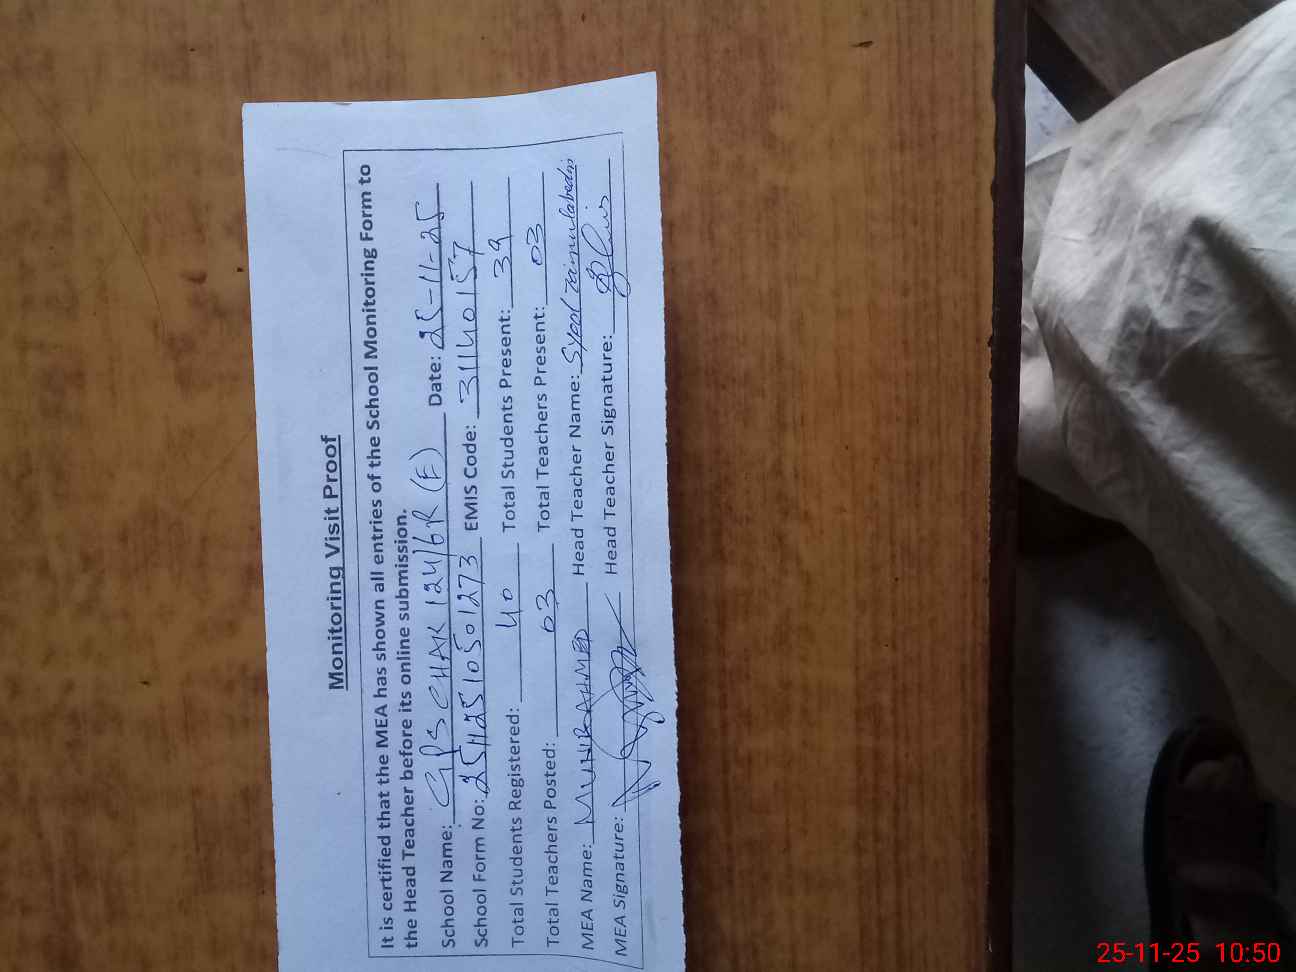 Monitoring Visit Proof
It is certified that the MEA has shown all entries of the School Monitoring Form to
the Head Teacher before its online submission.
School Name: GPS CHAK 124/6R (E) Date: 25-11-25
School Form No: 25112510501273 EMIS Code: 31140157
Total Students Registered: 40 Total Students Present: 39
Total Teachers Posted: 03 Total Teachers Present: 03
MEA Name: MUNIR AHMED Head Teacher Name: Syed Zainulabedin
MEA Signature: Head Teacher Signature:
25-11-25 10:50